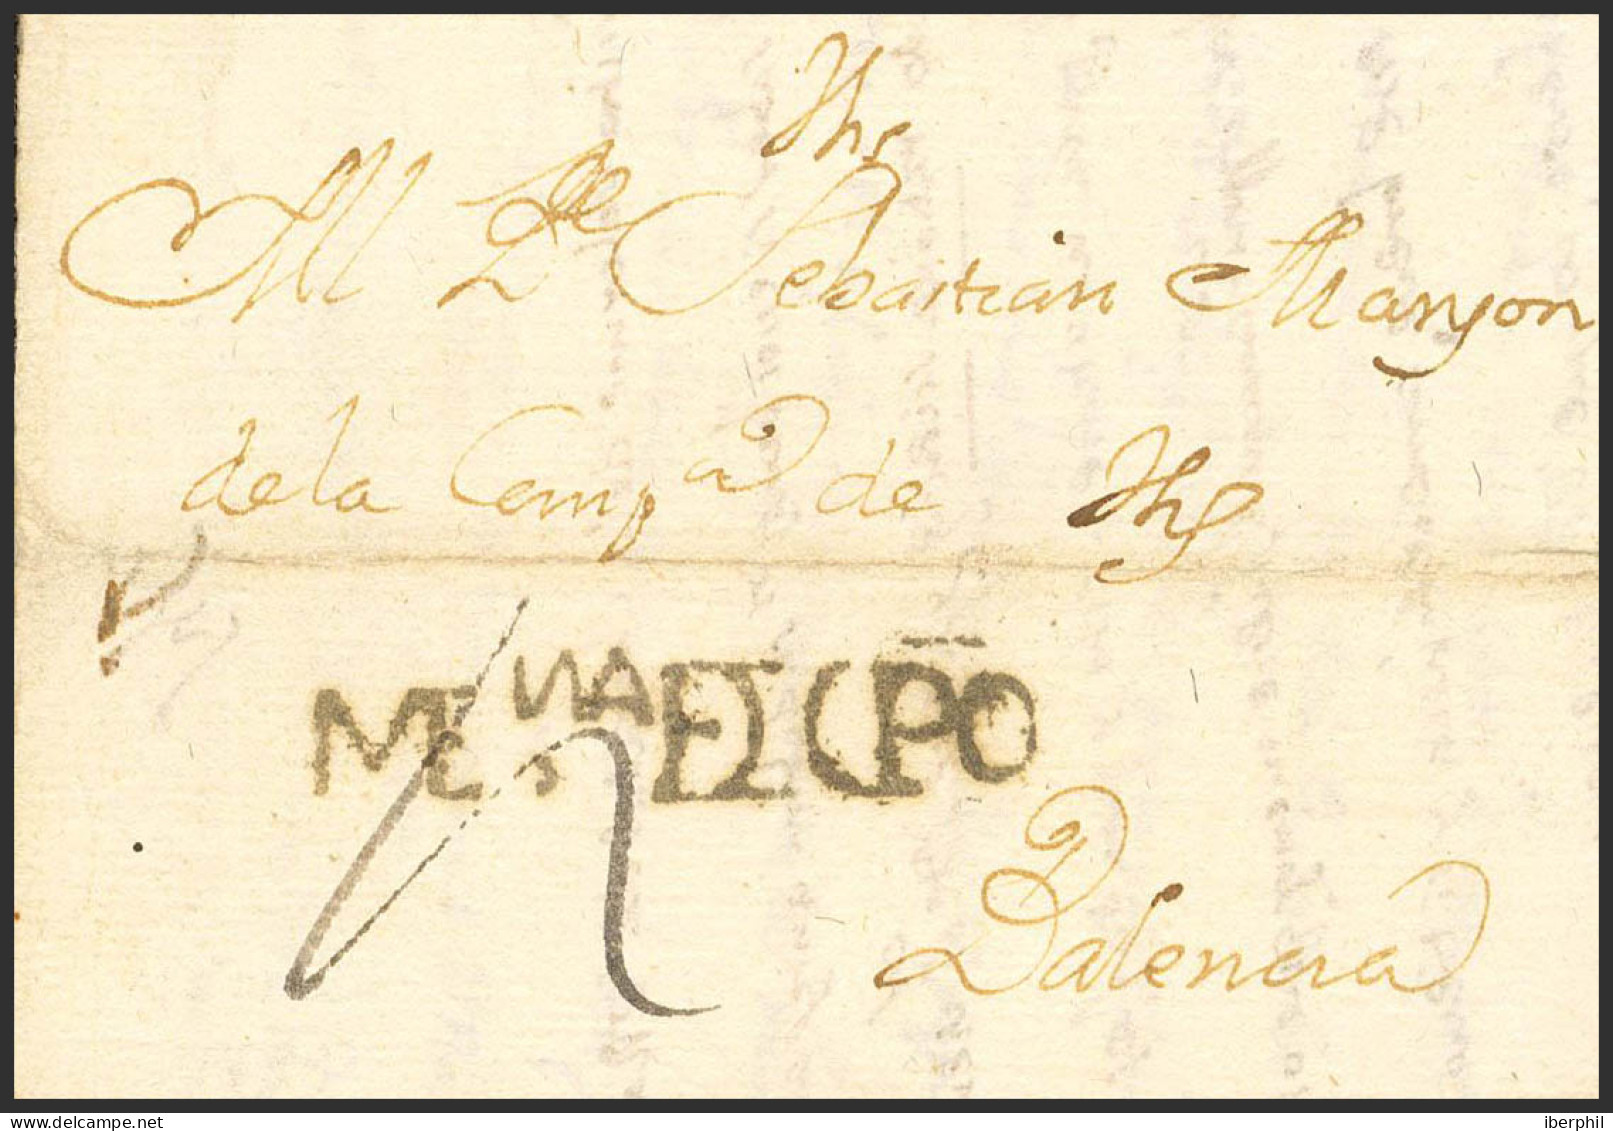 Jhs
Al Pe Sebastian Manjon
de la Compa de Jhs
MENA EL CPO
Palencia
delcampe.net
iberphil